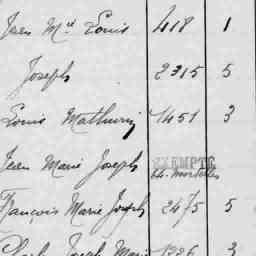 Jean Mie Louis 418 1
Joseph 2315 5
Louis Mathurin 1451 3
Jean Marie Joseph EXEMPTÉ
François Marie Joseph 2475 5
Joseph Marie 1226 3